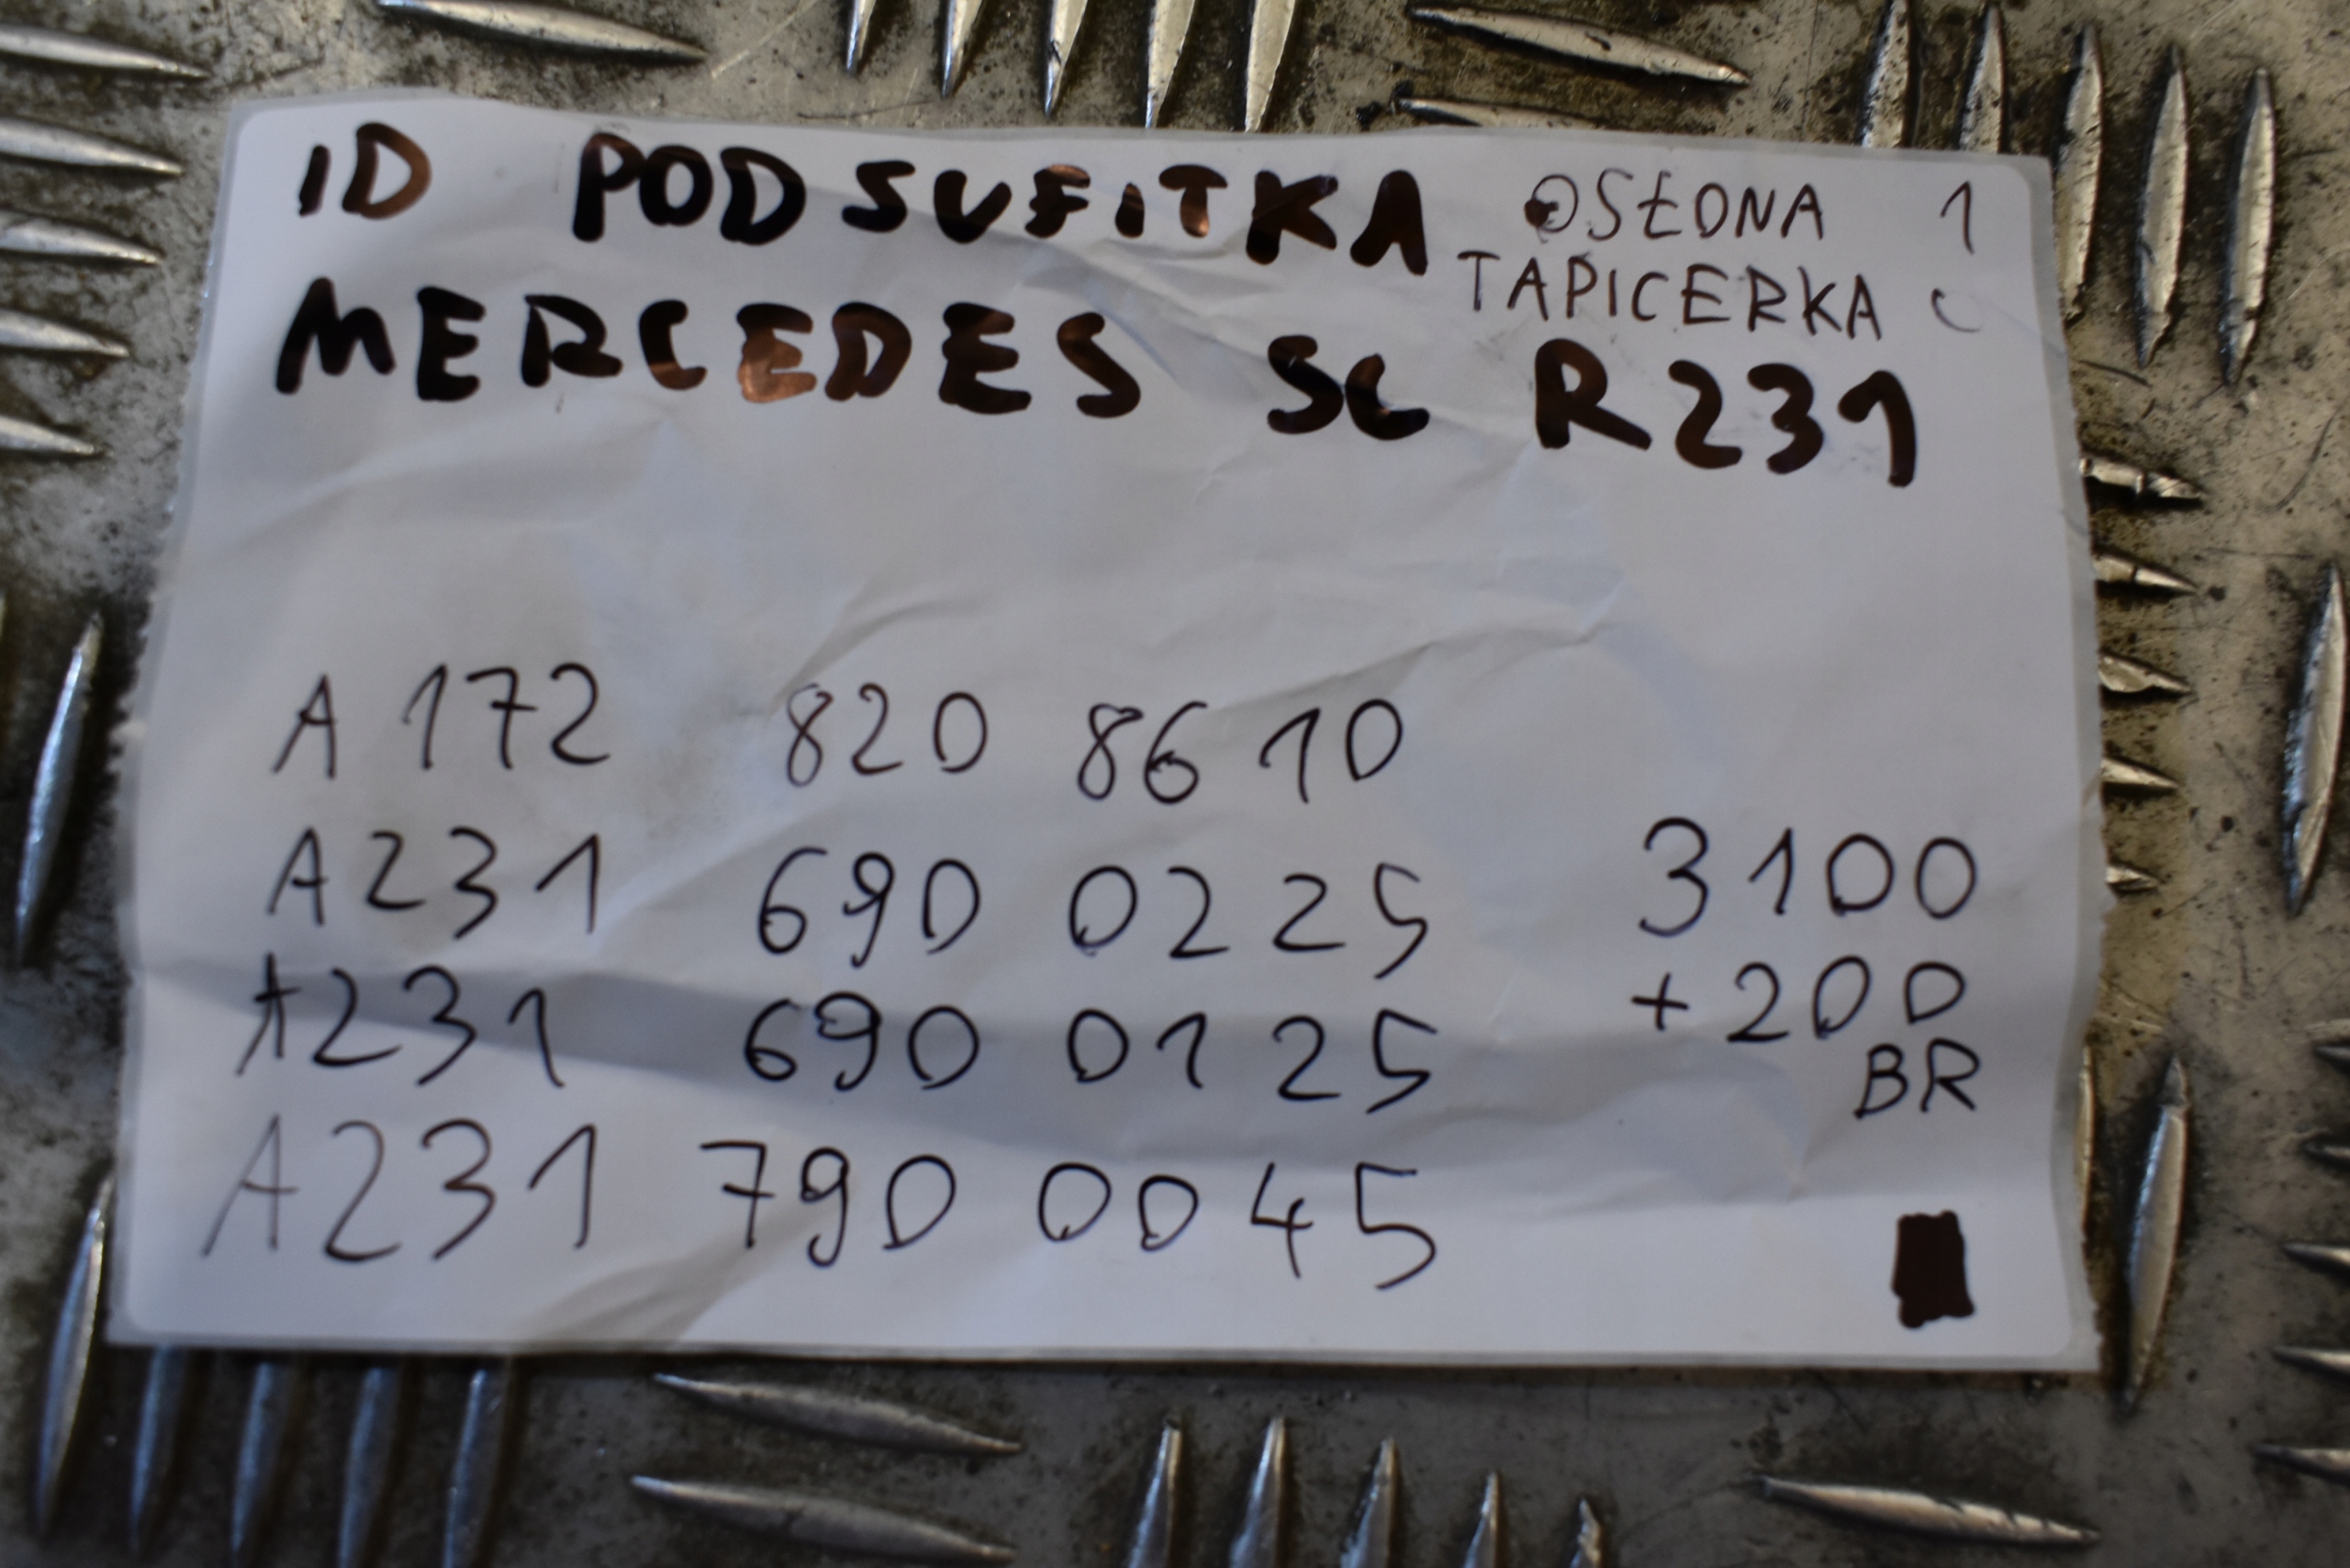 ID PODSUFITKA OSŁONA 1
TAPICERKA
MERCEDES SL R231
A 172 820 86 10
A 231 690 02 25
3100
A 231 690 01 25
+ 200
BR
A 231 790 00 45